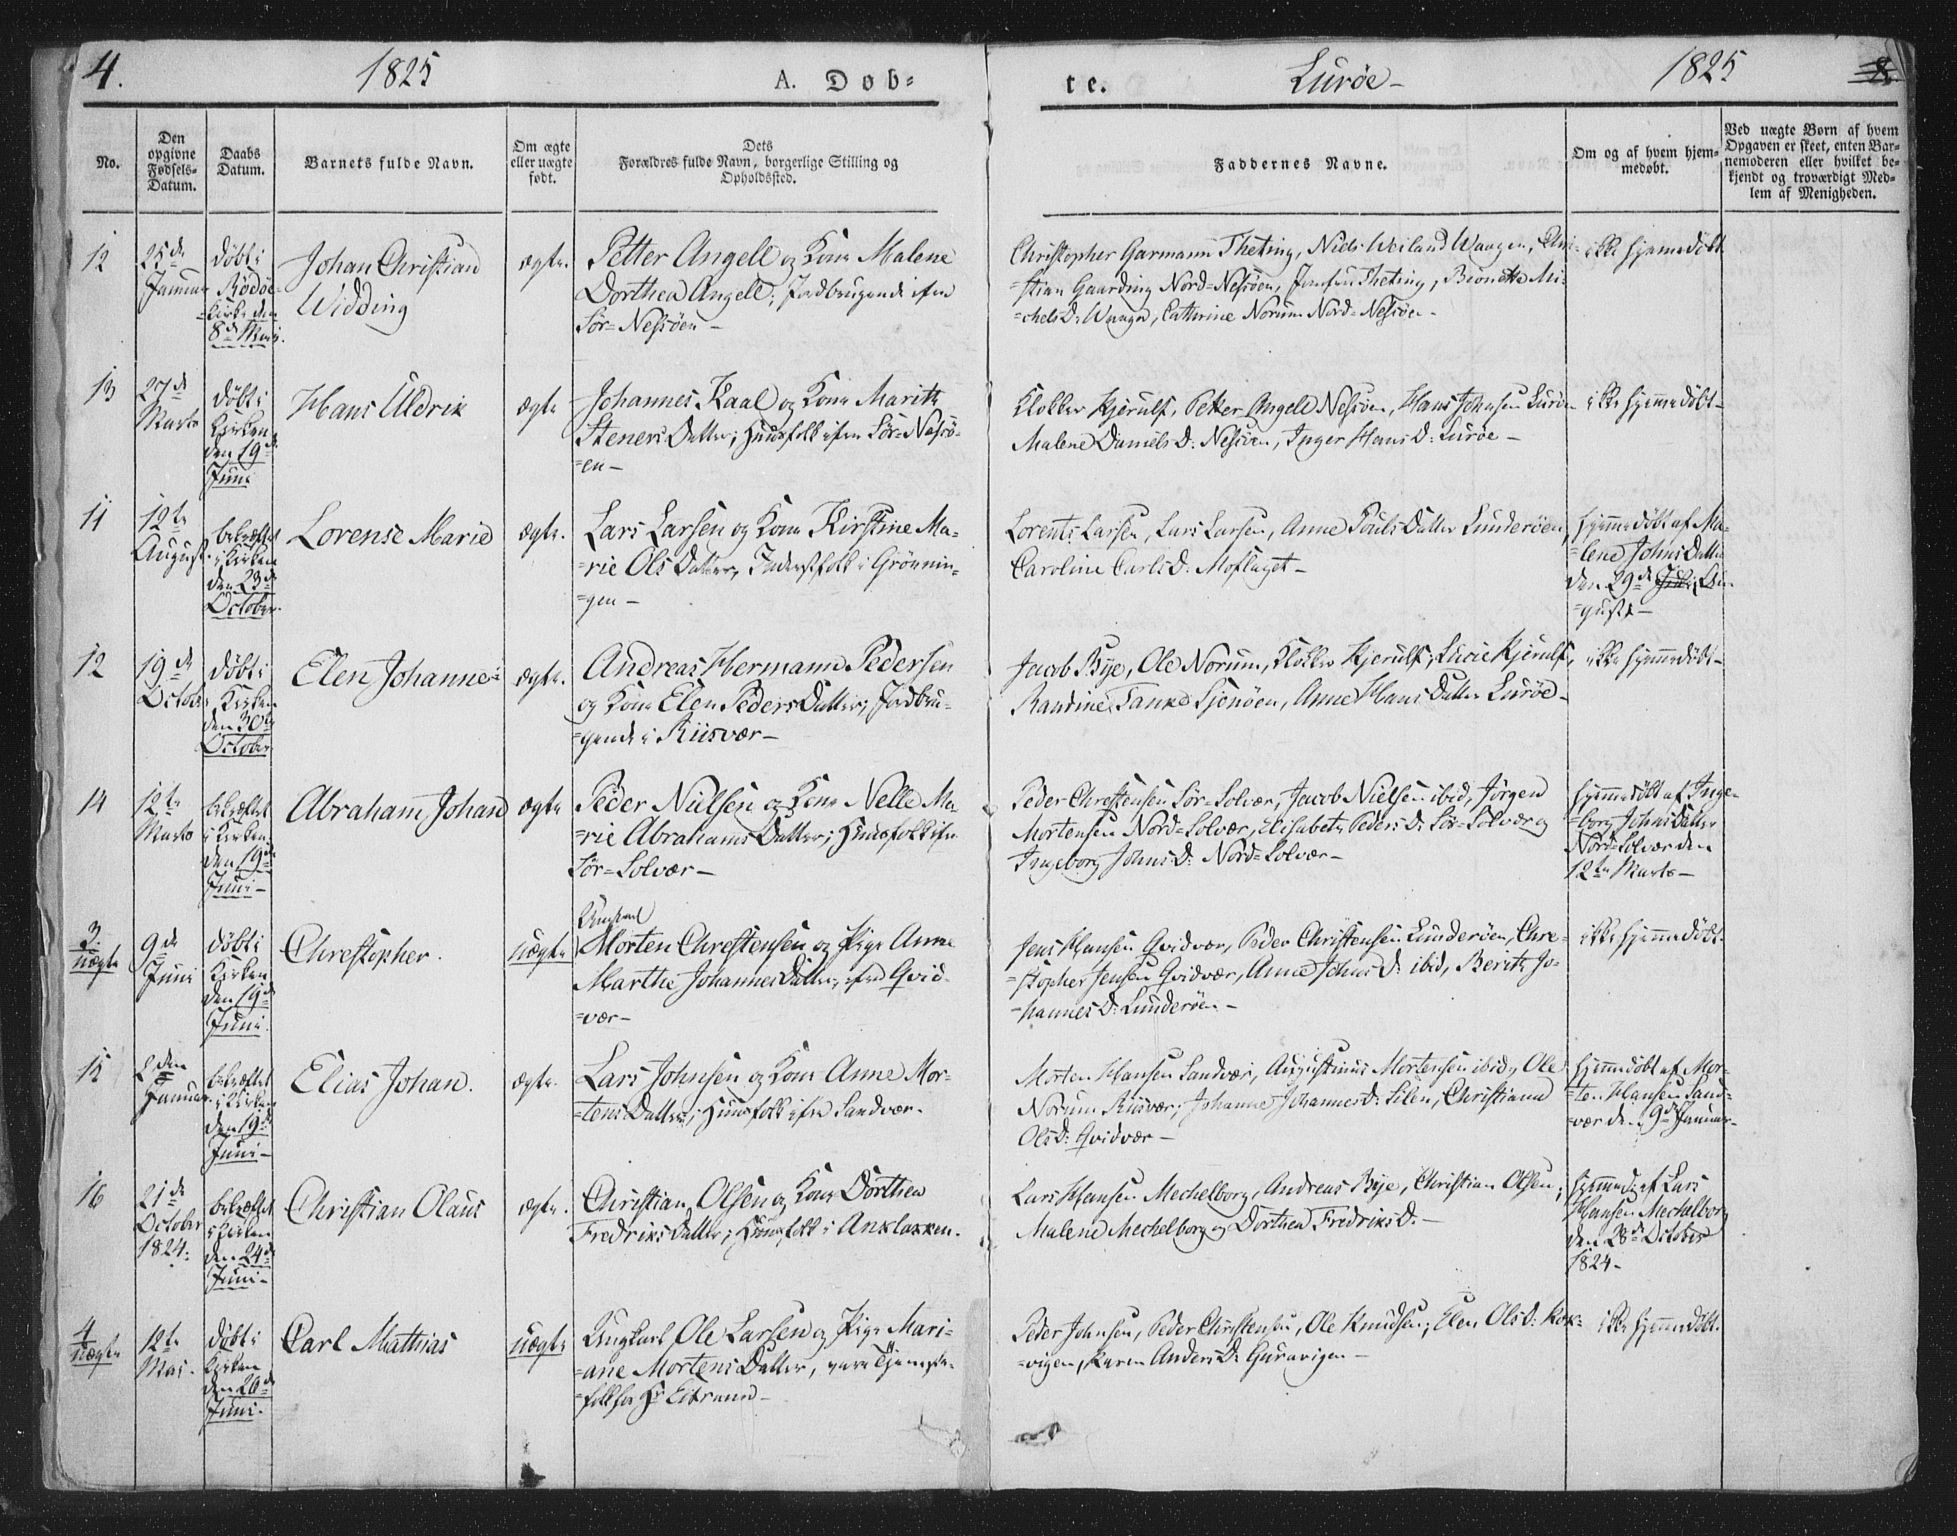 4.
1825
A. Døb-
te.
Lurøe-
1825
No.
Den
opgivne
Fødsels-
Datum.
Daabs
Datum.
Barnets fulde Navn.
Om ægte
eller uægte
født.
Dets
Forældres fulde Navn, borgerlige Stilling og
Opholdssted.
Faddernes Navne.
Om og af hvem hjem-
medøbt.
Ved uægte Børn af hvem
Opgaven er skeet, enten Bar-
nemoderen eller hvilket be-
kjendt og troværdigt Med-
lem af Menigheden.
12
25de
Januar
døbt i
Rödöe
Kirke den
8de Mai.
Johan Christian
Widding
ægte.
Petter Angell og Kone Malene
Dorthea Angell; Jordbrugende ifra
Sör=Nessöen-
Christopher Garmann Theting, Niels Weiland Waagen, Chri-
=stian Gaarding Nord=Nessöen, Theting,
=chels D: Waagen, Cathrine Norum Nord=Nessöen-
ikke hjemmedøbt
13
27de
Marts
døbt i
Kirken
den 19de
Juni
Hans Uldrik
ægte
Johannes Kaal og Kone Marith
Steners Datter; Huusfolk ifra Sör=Nessö-
=en-
Klokker Hjerulf, Petter Angell Nessöen, Hans Johnsen Luröe
Malene Daniels D: Nessöen, Inger Hans D: Luröe-
ikke hjemmedøbt-
11
12te
August
bekræftet
i Kirken
den 23de
October.
Lorense Marie
ægte.
Lars Larsen og Kone Kirstine Ma-
=rie Ols Datter, Inderstfolk i Grönnin-
=gen-
Lorents Larsen, Lars Larsen, Anne Pouls Datter Lunderöen,
Caroline Carls D: Moflaget-
hjemmedøbt af Ma-
=lene Johns Datter
den 29de Juli, Au-
=gust-
12
19de
Octobr
døbt i
Kirken
den 30te
October
Elen Johanne
ægte.
Andreas Hermann Pedersen
og Kone Elen Peders Datter, Jordbru-
=gende i Riisvær-
Jacob Bye, Ole Norum, Klokker Hjerulf, Lucie Hjerulf,
Randine Tanke Sjonöen, Anne Hans Datter Luröe-
ikke hjemmedøbt-
14
12te
Marts
bekræftet
i Kirken
den 19de
Juni-
Abraham Johan
ægte
Peder Nielsen og Kone Nelle Ma-
=rie Abrahams Datter; Huusfolk ifra
Sör=Solvær-
Peder Christensen Sör=Solvær, Jacob Nielsen ibid, Jörgen
Mortensen Nord=Solvær, Elisabeth Peders D: Sör=Solvær og
Ingeborg Johns D: Nord=Solvær-
hjemmedøbt af Inge-
borg Johns Datter
Nord=Solvær den
12te Marts-
3.
uægte
9de
Juni
døbt i
Kirken
den 19de
Juni.
Christopher.
uægte
Ungkarl
Morten Christensen og Pige Anne
Marthe Johannes Datter, ifra Qvid-
=vær-
Jens Hansen Qvidvær, Peder Christensen Lunderöen, Chri-
=stopher Jensen Qvidvær, Anne Johns D: ibid, Berith Jo-
=hannes D: Lunderöen-
ikke hjemmedøbt
15
2den
Januar
bekræftet
i Kirken
den 19de
Juni-
Elias Johan.
ægte.
Lars Johnsen og Kone Anne Mor-
tens Datter; Huusfolk ifra Sandvær.
Morten Hansen Sandvær, Augustinus Mortensen ibid, Ole
Norum Riisvær, Johanne Johannes D: Silen, Christiana
Ols D: Qvidvær-
hjemmedøbt af Mor-
=ten Hansen Sand-
=vær den 9de Januar-
16
21de
October
1824.
bekræftet
i Kirken
den 24de
Juni-
Christian Olaus
ægte.
Christian Olsen og Kone Dorthea
Fredriks Datter; Huusfolk i Anklakken.
Lars Hansen Mechelborg, Andreas Bye, Christian Olsen,
Malene Mechelborg og Dorthea Fredriks D:-
hjemmed. af Lars
Hansen Mechelborg
den 28de October
1824-
4
uægte
12te
Mai.
døbt i
Kirken
den 26de
Juni.
Carl Mathias
uægte
Ungkarl Ole Larsen og Pige Mari-
=ane Mortens Datter, Tjeneste-
=folk for Hr
Peder Johnsen, Peder Christensen, Ole Knudsen, Elen Ols D: Kok-
=vigen, Karen Anders D: Guravigen-
ikke hjemmedøbt.